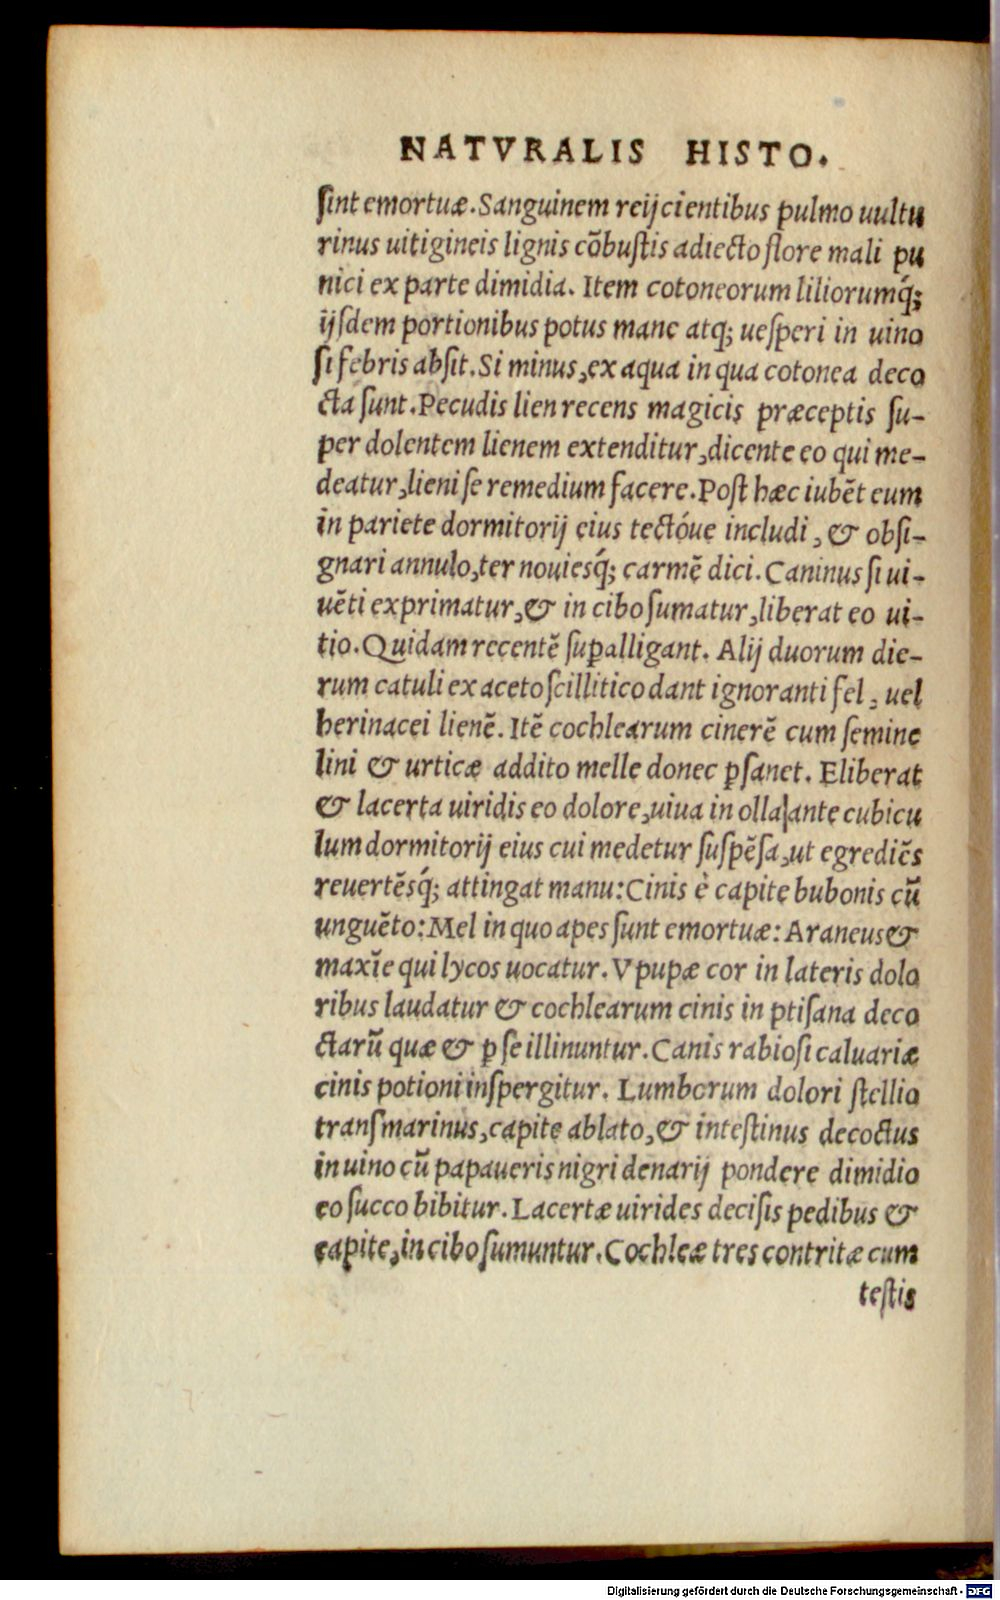 NATVRALIS HISTO.
ſint emortuæ. Sanguinem reijcientibus pulmo uultu
rinus uitigineis lignis cõbuſtis adiecto flore mali pu
nici ex parte dimidia. Item cotoneorum liliorumq́;
ijſdem portionibus potus mane atq; ueſperi in uino
ſi febris abſit. Si minus, ex aqua in qua cotonea deco
cta ſunt. Pecudis lien recens magicis præceptis ſu-
per dolentem lienem extenditur, dicente eo qui me-
deatur, lieni ſe remedium facere. Poſt hæc iubẽt eum
in pariete dormitorij eius tectóue includi, & obſi-
gnari annulo, ter nouiesq́; carmẽ dici. Caninus ſi ui-
uẽti exprimatur, & in cibo ſumatur, liberat eo ui-
tio. Quidam recentẽ ſuꝑalligant. Alij duorum die-
rum catuli ex aceto ſcillitico dant ignoranti fel, uel
herinacei lienẽ. Itẽ cochlearum cinerẽ cum ſemine
lini & urticæ addito melle donec ꝑſanet. Eliberat
& lacerta uiridis eo dolore, uiua in olla ante cubicu
lum dormitorij eius cui medetur ſuſpẽſa, ut egrediẽs
reuertẽsq́; attingat manu: Cinis è capite bubonis cũ
unguẽto: Mel in quo apes ſunt emortuæ: Araneus &
maxĩe qui lycos uocatur. Vpupæ cor in lateris dolo
ribus laudatur & cochlearum cinis in ptiſana deco
ctarũ quæ & ꝑ ſe illinuntur. Canis rabioſi caluariæ
cinis potioni inſpergitur. Lumborum dolori ſtellio
tranſmarinus, capite ablato, & inteſtinus decoctus
in uino cũ papaueris nigri denarij pondere dimidio
eo ſucco bibitur. Lacertæ uirides deciſis pedibus &
capite, in cibo ſumuntur. Cochleæ tres contritæ cum
teſtis
Digitalisierung gefördert durch die Deutsche Forschungsgemeinschaft - DFG